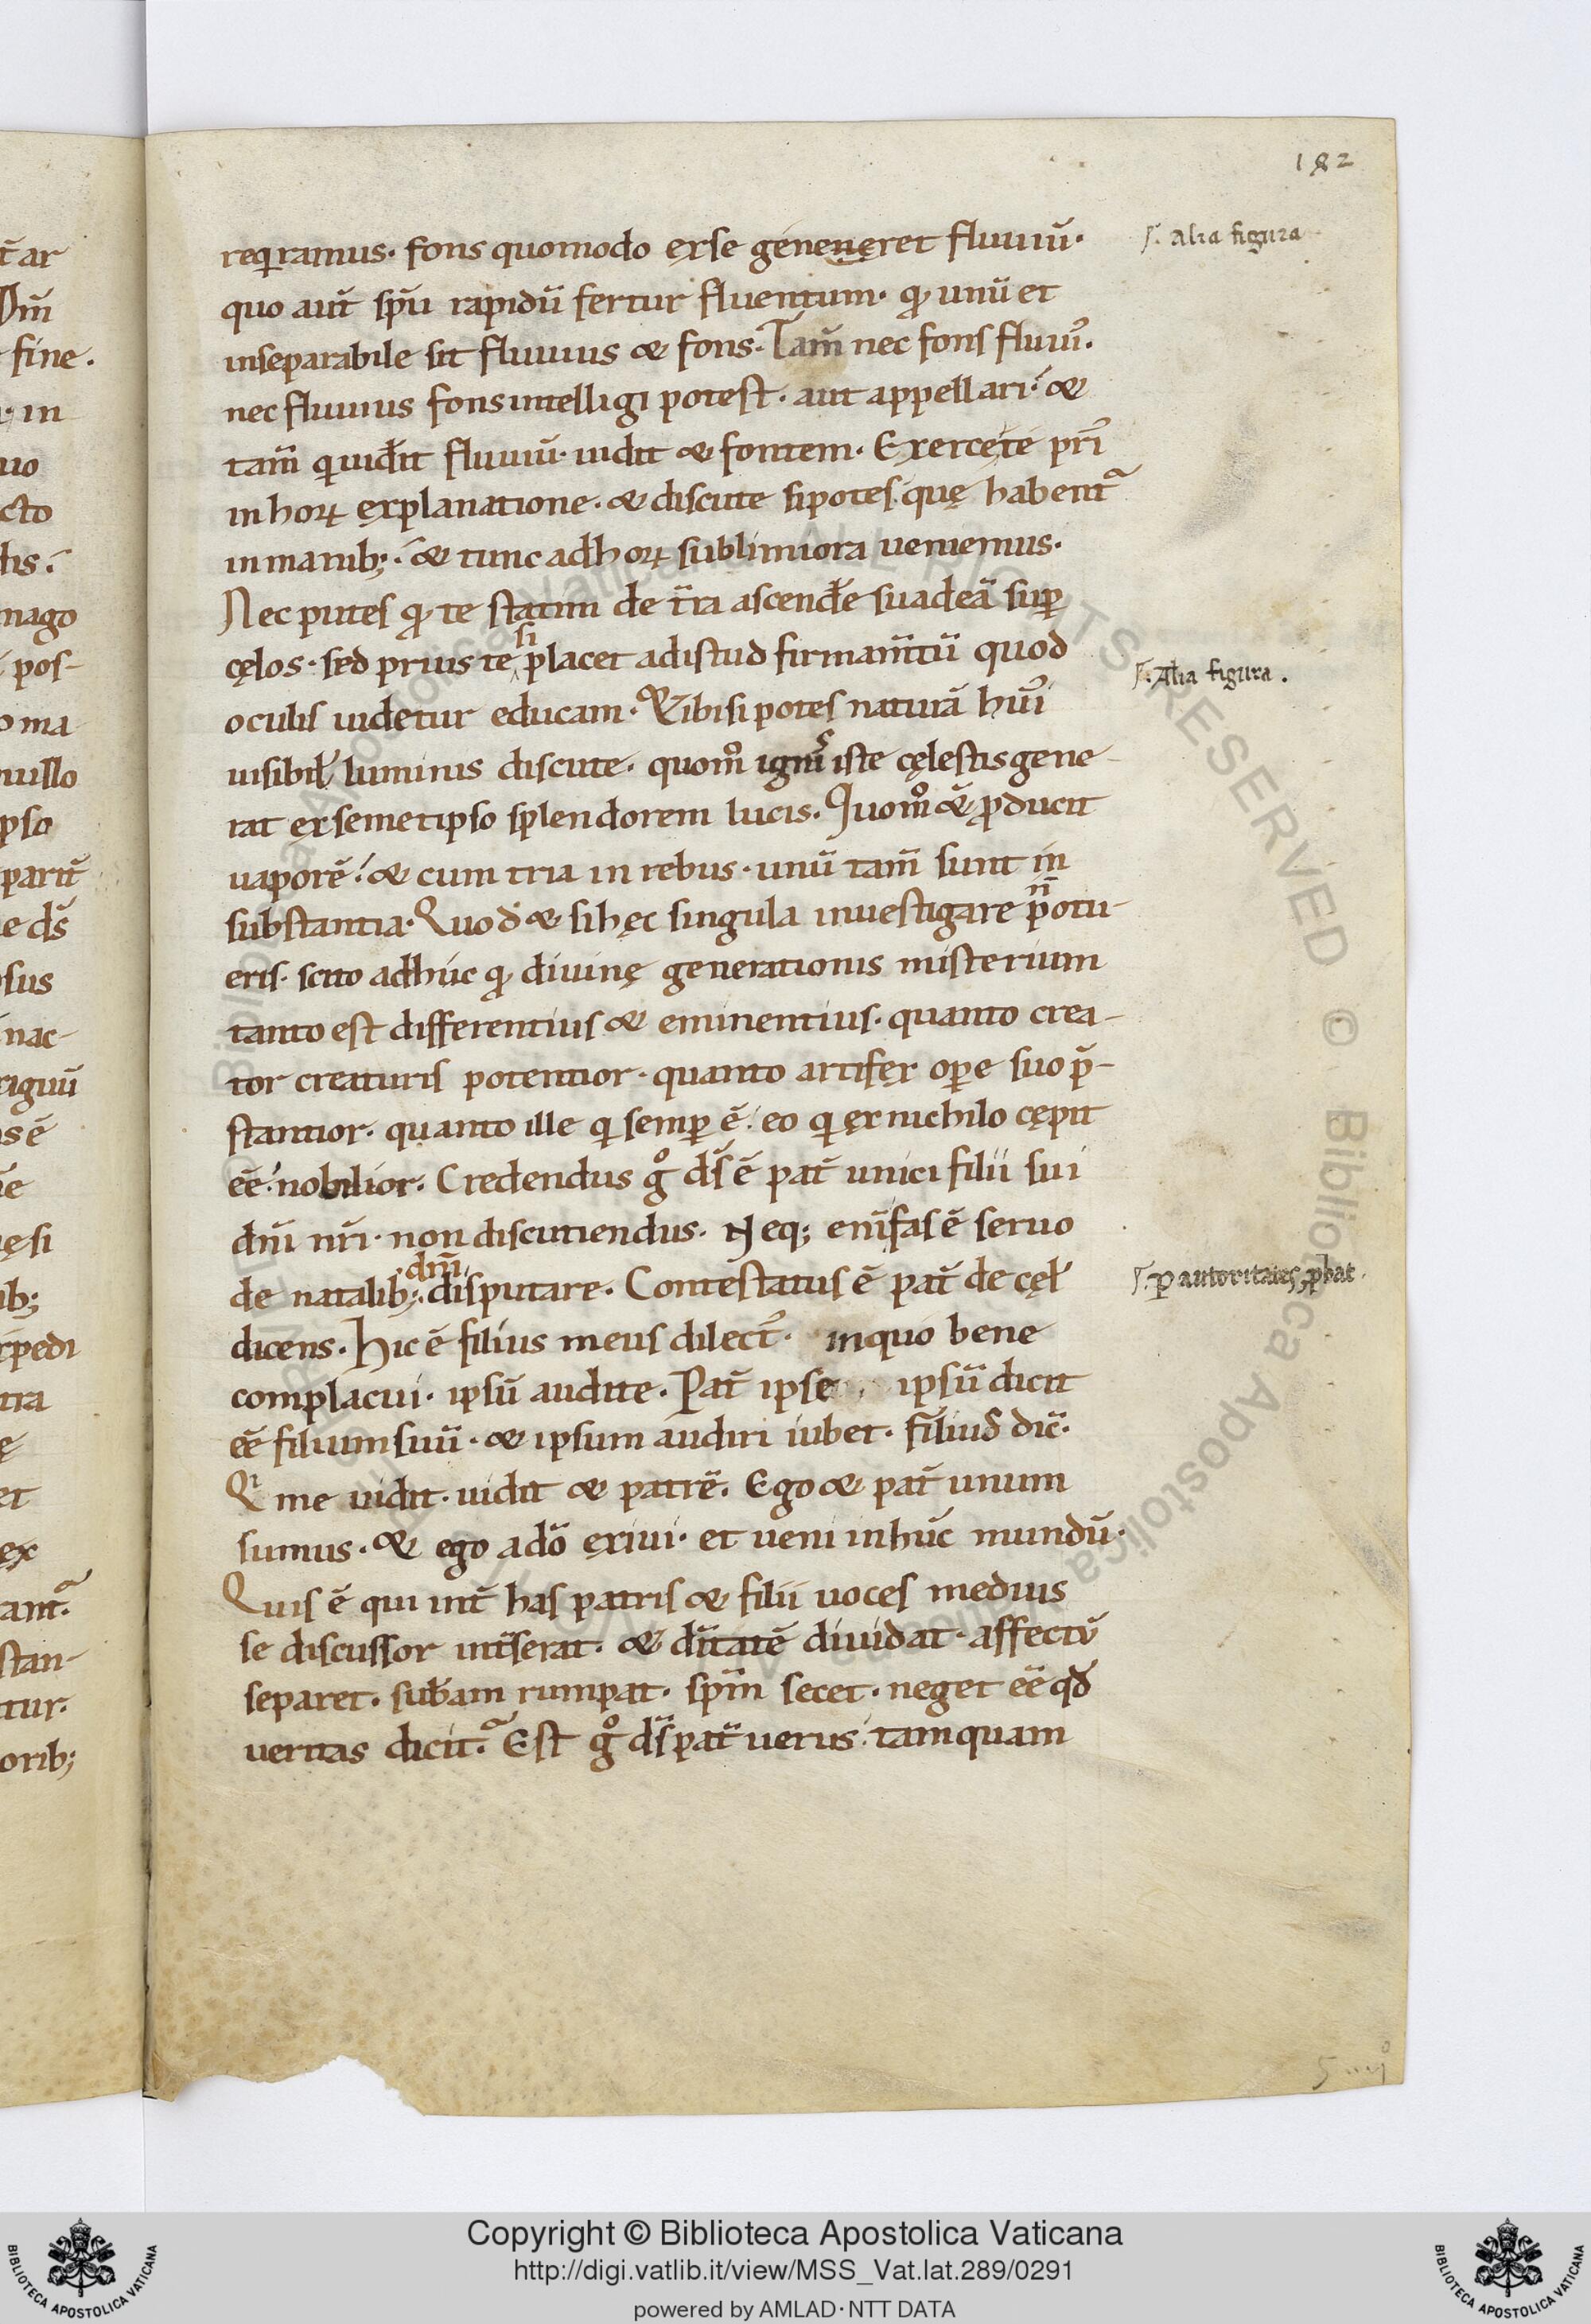 182
reqͥramus· fons quomodo exse geneneret fluuiū· Alia figura
quo aut̄ sp̄u rapidū fertur fluentum· qđ unū et
inseparabile sit fluuius & fons· Tam̄ nec fons fluui᾽·
nec fluuius fons intelligi potest· aut appellari·́ &
tam̄ qͥ uidit fluuiū· uidit & fontem· Exercete pri᾽
inhoꝝ explanatione· & discute sipotes quę habent᷑
inmanib;·́ & tunc adhoꝝ sublimiora ueniemus·
Nec putes qđ te statim de t̄ra ascendēe suadeā suꝑ
cęlos· sed prius te si placet adistud firmam̄tū quod Alia figura·
oculis uidetur educam· & ibisipotes naturā hui᾽
uisibil̄ luminis discute· quom̊ ignis iste cęlestis gene-
rat exsemetipso splendorem lucis· Quom̊ &̄ ꝓducit
uaporē·́ & cum tria in rebus· unū tam̄ sunt in
substantia· Quod & si hęc singula inuestigare n̄ potu-
eris· scito adhuc qđ diuinę generationis misterium
tanto est differentius & eminentius· quanto crea-
tor creaturis potentior· quanto artifex oꝑe suo p̄-
stantior· quanto ille qͥ semꝑ ē·́ eo qͥ ex nichilo cępit
eē·́ nobilior· Credendus g̊ ds̄ ē pat̄ unici filii sui
dn̄i nr̄i· non discutiendus· Neq; eni᷑fas ē seruo
de natalib; dn̄i disputare· Contestatus ē pat̄ de cęl̄ ꝑ autoritates ꝓbat·
dicens· Hic ē filius meus dilect᾽· inquo bene
complacui· ipsū audite· Pat̄ ipse ipsū dicit
eē filium suū· & ipsum audiri iubet· filius dic̄·
Qͥ me uidit· uidit & patrē· Ego & pat̄ unum
sumus· & ego adō exiui· et ueni inhūc mundū·
Quis ē qui int̄ has patris & filii uoces medius
se discussor int̄serat· & d̄itatē diuidat· affectū
separet· sub̄am rumpat· sp̄m secet· neget eē qđ
ueritas dicit᷑· Est g̊ ds̄ pat̄ uerus· tamquam
Copyright © Biblioteca Apostolica Vaticana
http://digi.vatlib.it/view/MSS_Vat.lat.289/0291
powered by AMLAD·NTT DATA